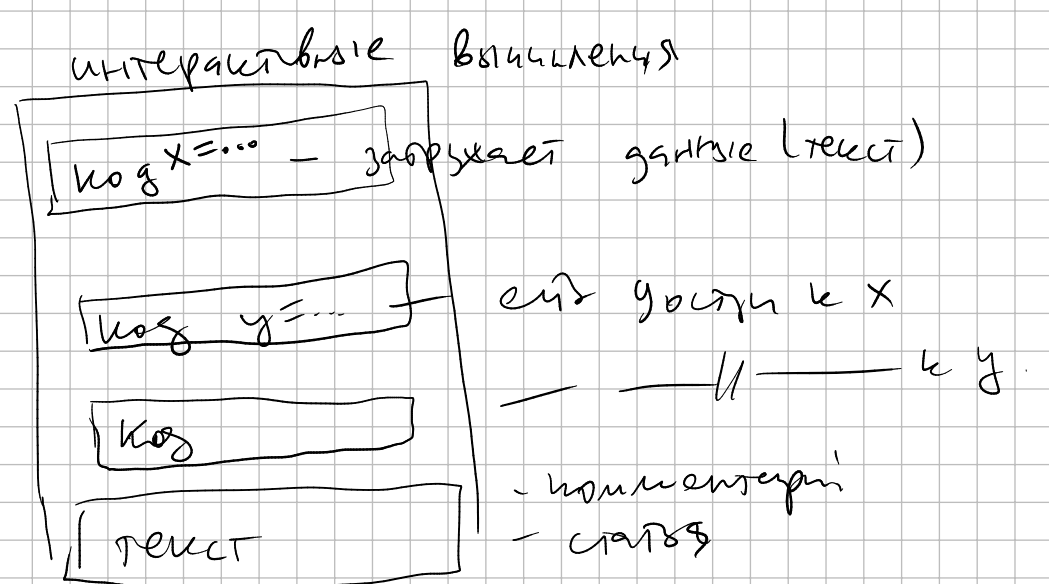 интерактивные вычисления
код x=... — загружает данные (текст)
код y=... — есть доступ к x
— —//— к y
код
- комментарий
текст - статья